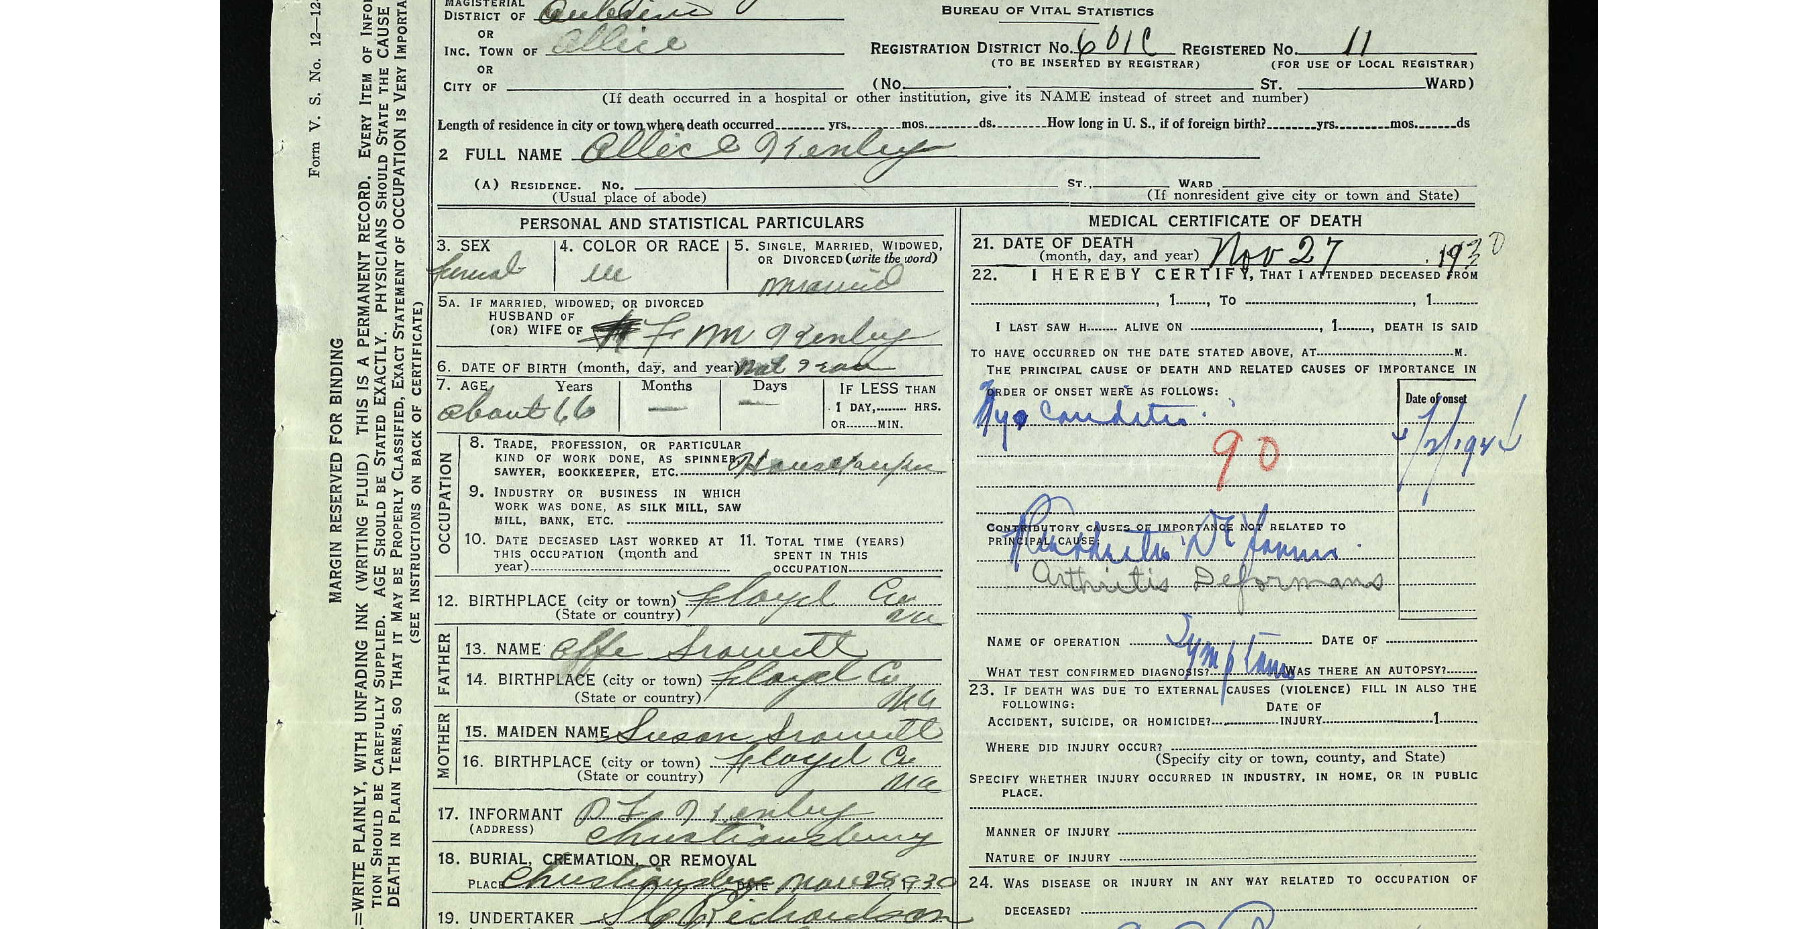 MAGISTERIAL
DISTRICT OF
BUREAU OF VITAL STATISTICS
OR
INC. TOWN OF Allice
REGISTRATION DISTRICT No. 601C REGISTERED No. 11
OR
(TO BE INSERTED BY REGISTRAR) (FOR USE OF LOCAL REGISTRAR)
CITY OF (No. ST. WARD)
(If death occurred in a hospital or other institution, give its NAME instead of street and number)
Length of residence in city or town where death occurred yrs. mos. ds. How long in U. S., if of foreign birth? yrs. mos. ds
2 FULL NAME Allice
(A) RESIDENCE. No. ST., WARD
(Usual place of abode) (If nonresident give city or town and State)
PERSONAL AND STATISTICAL PARTICULARS
3. SEX
4. COLOR OR RACE
5. SINGLE, MARRIED, WIDOWED,
OR DIVORCED (write the word)
Femal
W
Married
5A. IF MARRIED, WIDOWED, OR DIVORCED
HUSBAND OF
(OR) WIFE OF
6. DATE OF BIRTH (month, day, and year)
7. AGE Years Months Days IF LESS THAN
about 66 — — 1 DAY, HRS.
OR MIN.
OCCUPATION
8. TRADE, PROFESSION, OR PARTICULAR
KIND OF WORK DONE, AS SPINNER,
SAWYER, BOOKKEEPER, ETC.
9. INDUSTRY OR BUSINESS IN WHICH
WORK WAS DONE, AS SILK MILL, SAW
MILL, BANK, ETC.
10. DATE DECEASED LAST WORKED AT
THIS OCCUPATION (month and
year)
11. TOTAL TIME (YEARS)
SPENT IN THIS
OCCUPATION
12. BIRTHPLACE (city or town) Floyd Co
(State or country) Va
FATHER
13. NAME
14. BIRTHPLACE (city or town) Floyd Co
(State or country) Va
MOTHER
15. MAIDEN NAME Susan
16. BIRTHPLACE (city or town) Floyd Co
(State or country) Va
17. INFORMANT
(ADDRESS) Christiansburg
18. BURIAL, CREMATION, OR REMOVAL
PLACE Christiansburg DATE Nov 28 1930
19. UNDERTAKER Richardson
MEDICAL CERTIFICATE OF DEATH
21. DATE OF DEATH
(month, day, and year) Nov 27, 1930
22. I HEREBY CERTIFY, THAT I ATTENDED DECEASED FROM
, 1 , TO , 1
I LAST SAW H ALIVE ON , 1 , DEATH IS SAID
TO HAVE OCCURRED ON THE DATE STATED ABOVE, AT M.
THE PRINCIPAL CAUSE OF DEATH AND RELATED CAUSES OF IMPORTANCE IN
ORDER OF ONSET WERE AS FOLLOWS:
Date of onset
90
CONTRIBUTORY CAUSES OF IMPORTANCE NOT RELATED TO
PRINCIPAL CAUSE:
Arthritis Deformans
NAME OF OPERATION DATE OF
Symptoms
WHAT TEST CONFIRMED DIAGNOSIS? WAS THERE AN AUTOPSY?
23. IF DEATH WAS DUE TO EXTERNAL CAUSES (VIOLENCE) FILL IN ALSO THE
FOLLOWING:
DATE OF
ACCIDENT, SUICIDE, OR HOMICIDE? INJURY 1
WHERE DID INJURY OCCUR?
(Specify city or town, county, and State)
SPECIFY WHETHER INJURY OCCURRED IN INDUSTRY, IN HOME, OR IN PUBLIC
PLACE.
MANNER OF INJURY
NATURE OF INJURY
24. WAS DISEASE OR INJURY IN ANY WAY RELATED TO OCCUPATION OF
DECEASED?
Form V. S. No. 12—12-
MARGIN RESERVED FOR BINDING
=WRITE PLAINLY, WITH UNFADING INK (WRITING FLUID) THIS IS A PERMANENT RECORD. EVERY ITEM OF INFOR
TION SHOULD BE CAREFULLY SUPPLIED. AGE SHOULD BE STATED EXACTLY. PHYSICIANS SHOULD STATE THE CAUSE
DEATH IN PLAIN TERMS, SO THAT IT MAY BE PROPERLY CLASSIFIED, EXACT STATEMENT OF OCCUPATION IS VERY IMPORTA
(SEE INSTRUCTIONS ON BACK OF CERTIFICATE)